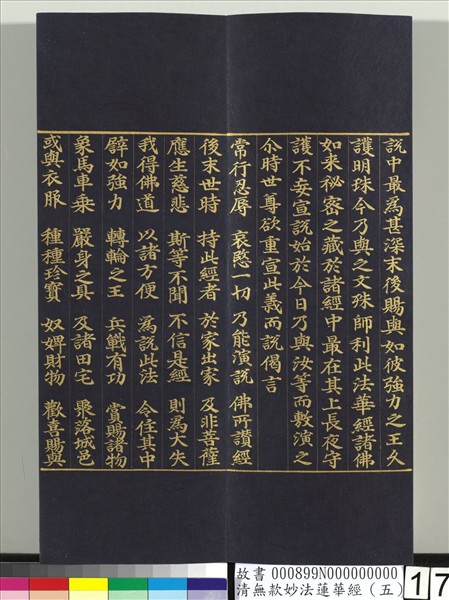 說中最為甚深末後賜與如彼強力之王久
護明珠今乃與之文殊師利此法華經諸佛
如來祕密之藏於諸經中最在其上長夜守
護不妄宣說始於今日乃與汝等而敷演之
尒時世尊欲重宣此義而說偈言
常行忍辱 哀愍一切 乃能演說 佛所讚經
後末世時 持此經者 於家出家 及非菩薩
應生慈悲 斯等不聞 不信是經 則為大失
我得佛道 以諸方便 為說此法 令住其中
譬如強力 轉輪之王 兵戰有功 賞賜諸物
象馬車乘 嚴身之具 及諸田宅 聚落城邑
或與衣服 種種珍寶 奴婢財物 歡喜賜與
故書 000899N000000000
清無款妙法蓮華經（五）
17